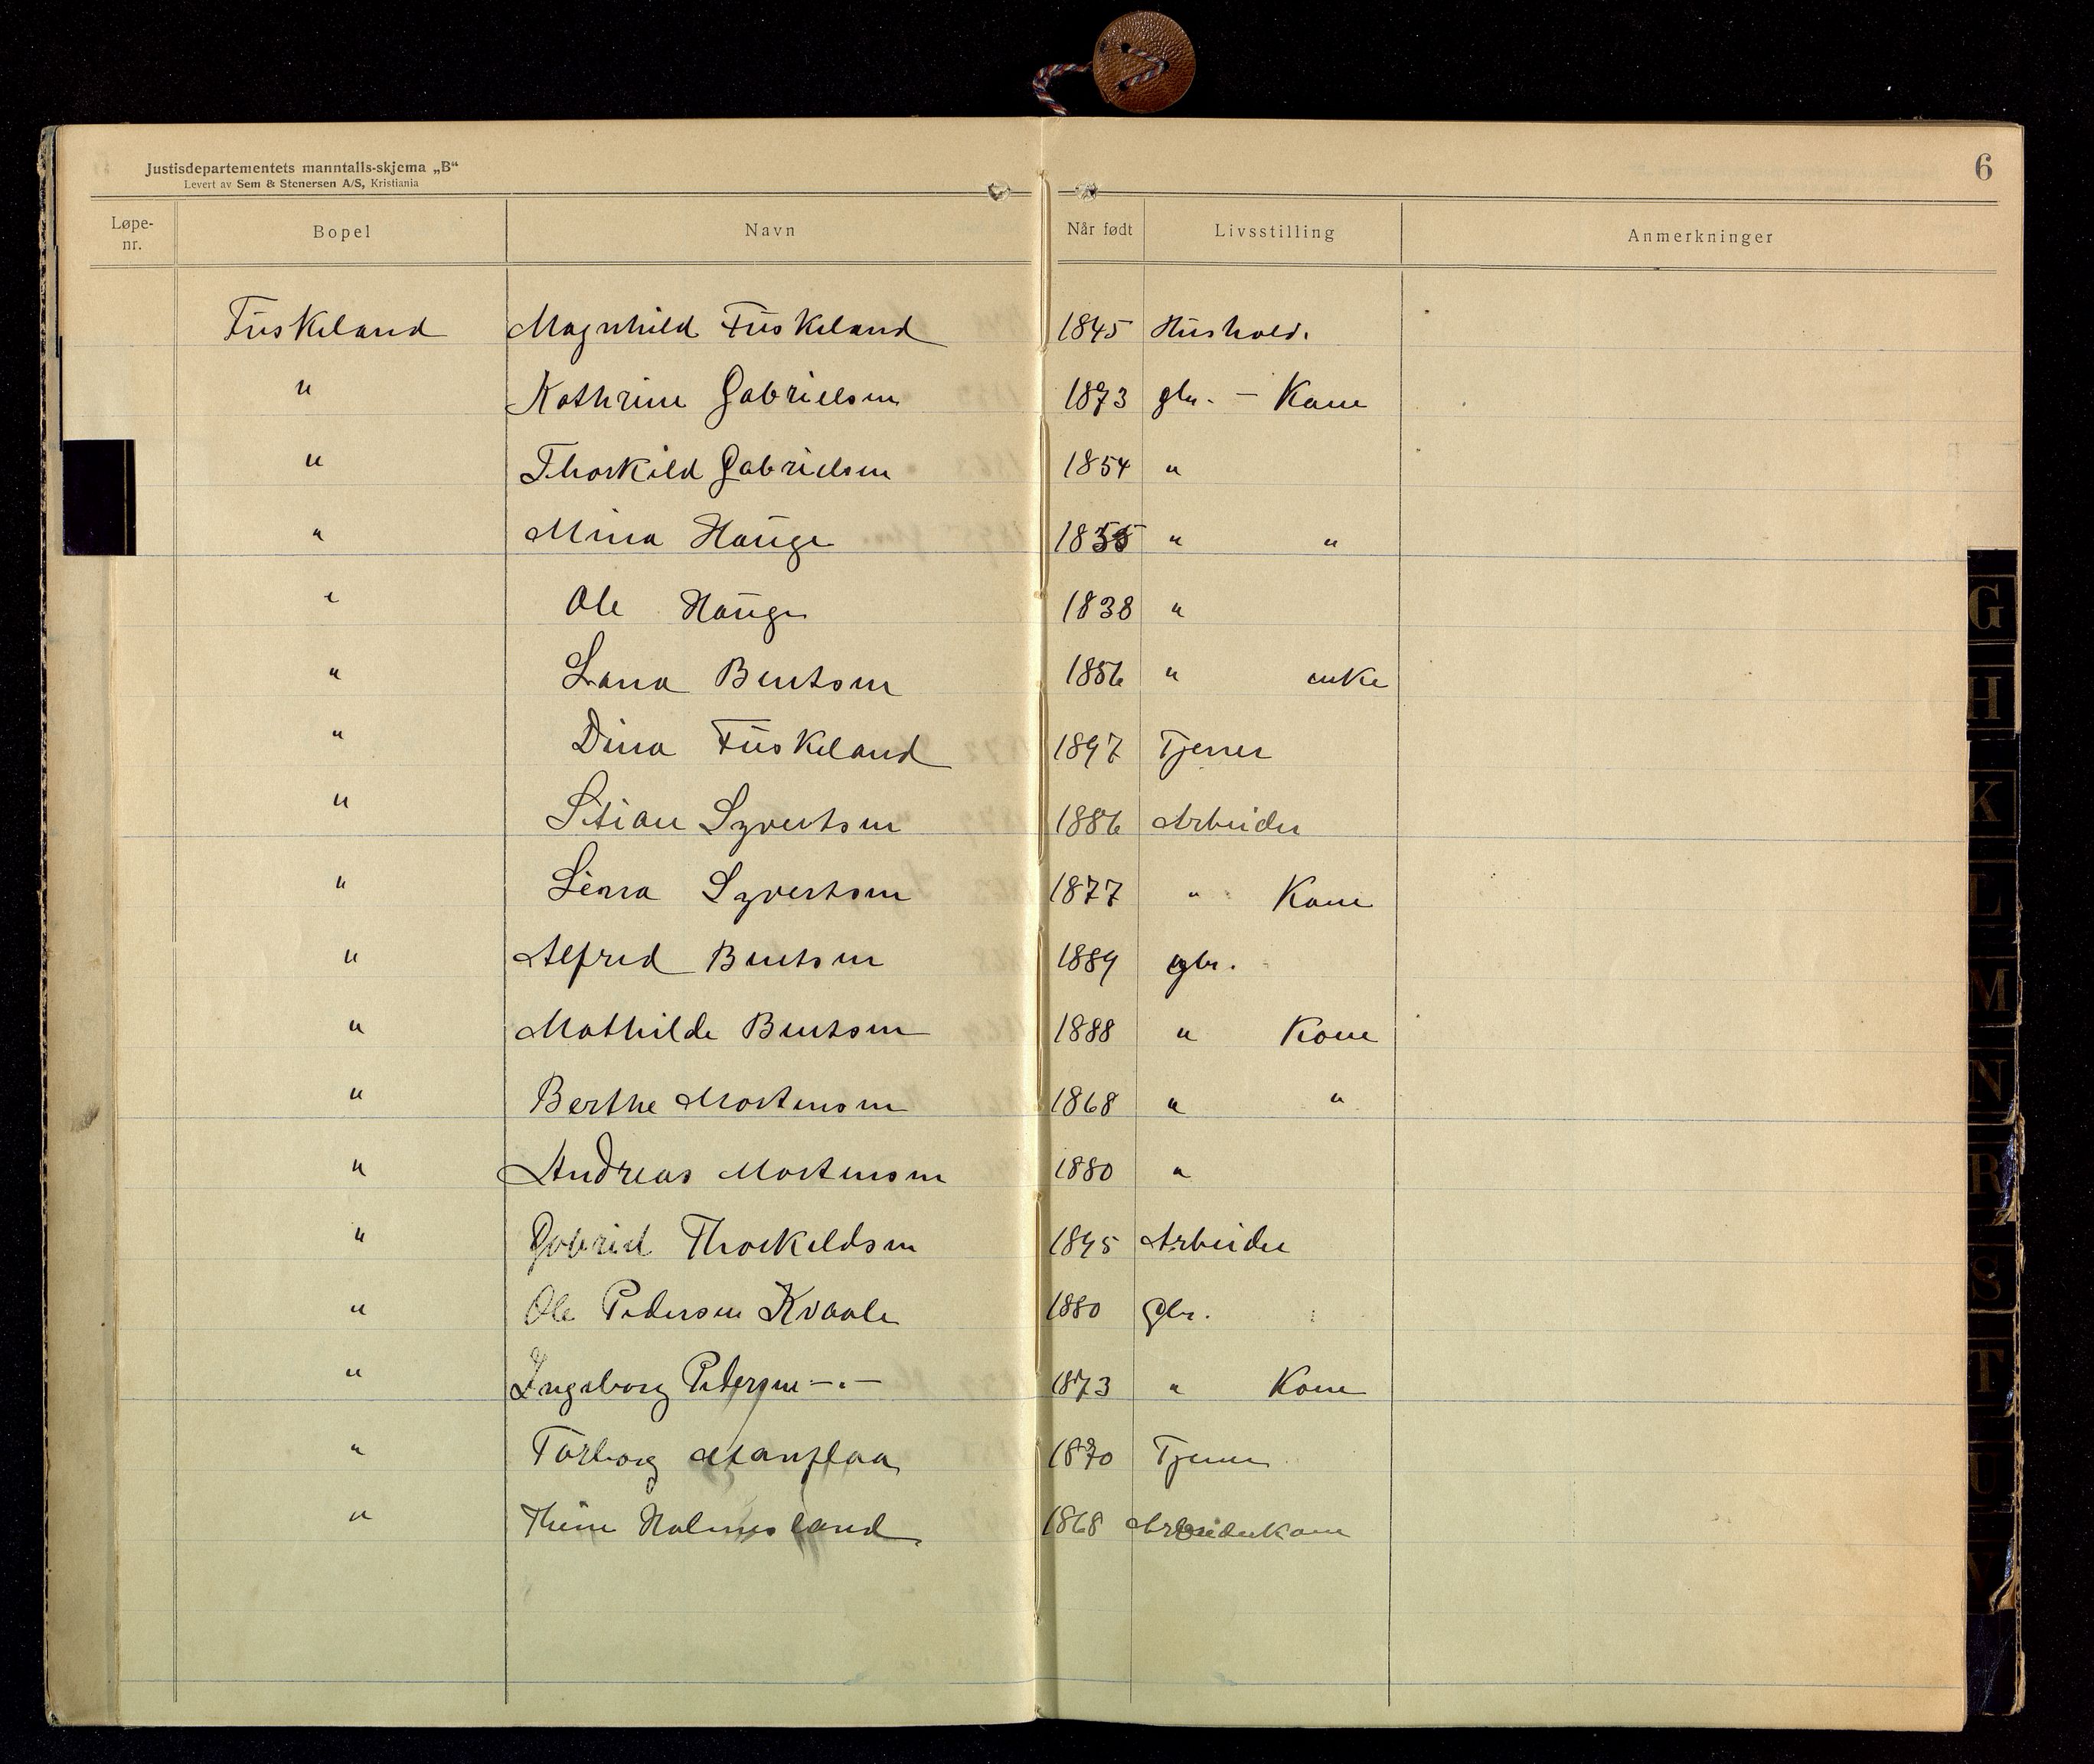 Justisdepartementets manntalls-skjema „B“
Levert av Sem & Stenersen A/S, Kristiania
6
Løpe-nr. Bopel Navn Når født Livsstilling Anmerkninger
Fuskeland Magnhild Fuskeland 1845 Hushold.
" Kathrine Gabrielsen 1873 gbr. - Kone
" Thorkild Gabrielsen 1854 "
" Mina Hauge 1855 " "
" Ole Hauge 1838 "
" Lana Bentsen 1856 " enke
" Dina Fuskeland 1897 Tjener
" Stian Syvertsen 1886 Arbeider
" Lena Syvertsen 1877 " Kone
" Alfred Bentsen 1889 gbr.
" Mathilde Bentsen 1888 " Kone
" Berthe Mortensen 1868 " "
" Andreas Mortensen 1880 "
" Gabriel Thorkildsen 1895 Arbeider
" Ole Pedersen Kvaale 1880 Gbr.
" Ingeborg Pedersen -"- 1873 " Kone
" Torborg 1870 Tjener
" Thine Holmesland 1868 Arbeiderkone
G
H
K
L
M
N
R
S
T
U
V